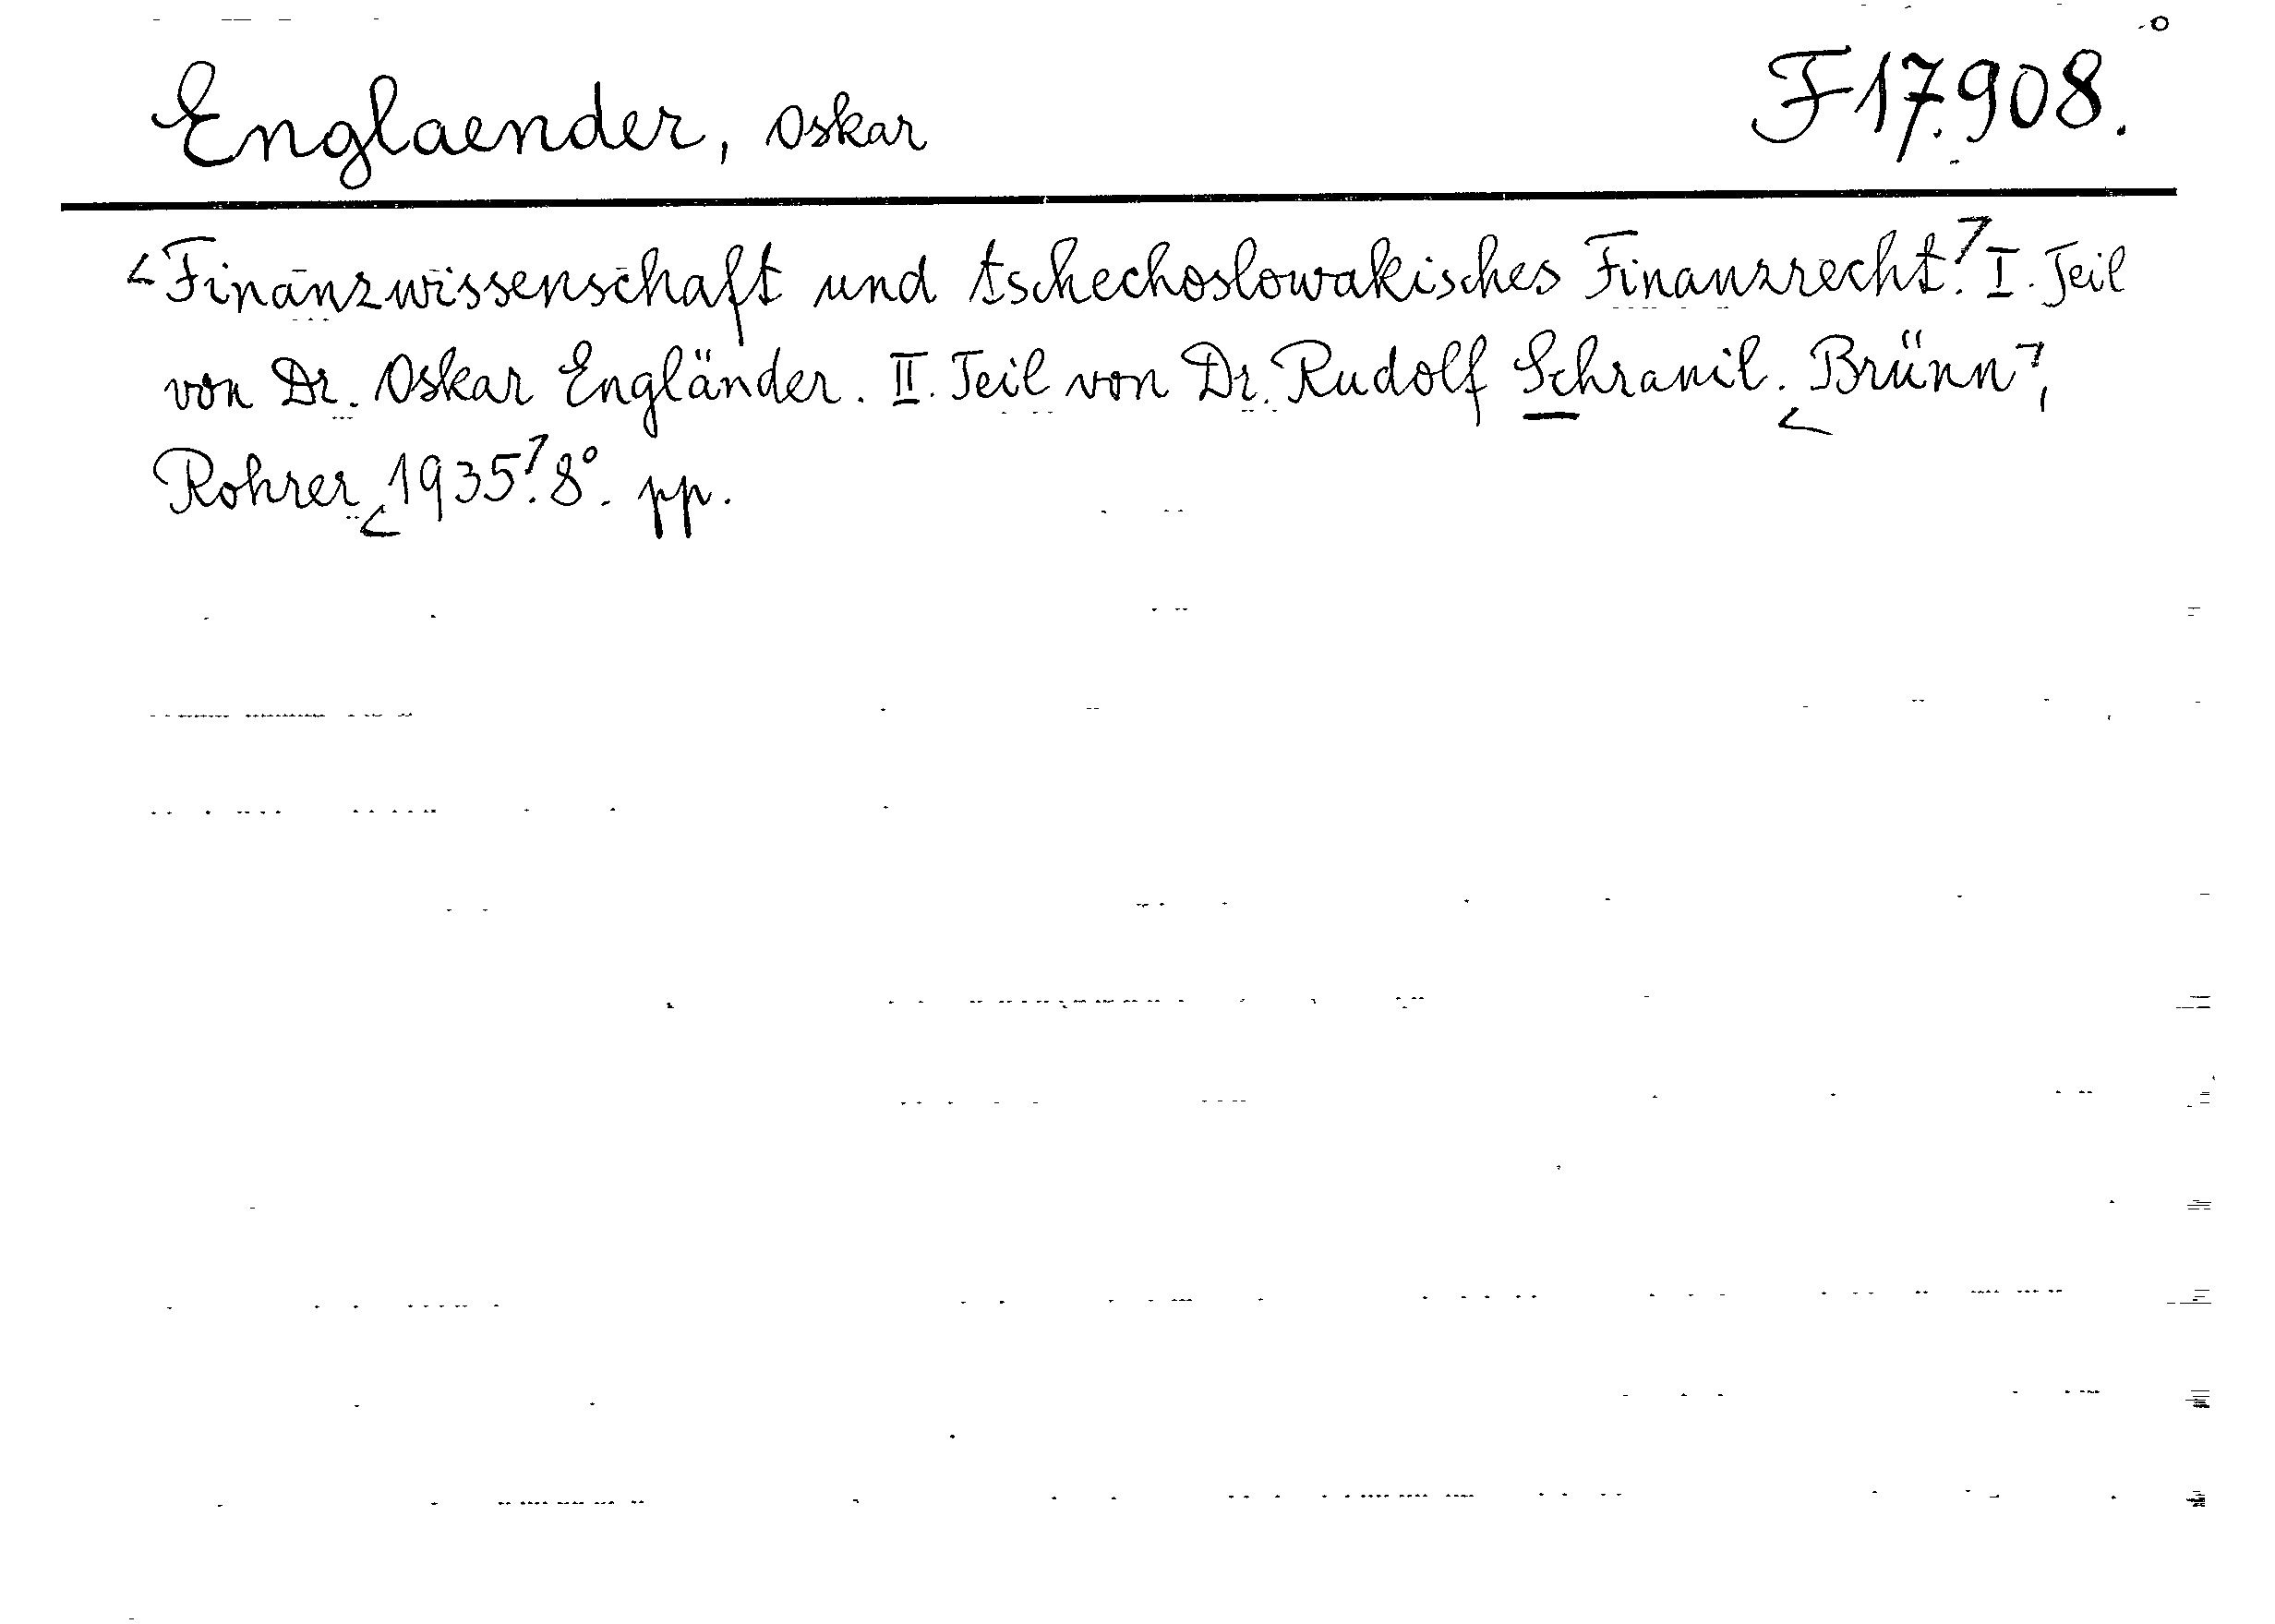 Englaender, Oskar F 17.908.
<Finanzwissenschaft und tschechoslowakisches Finanzrecht.> I. Teil
von Dr. Oskar Engländer. II. Teil von Dr. Rudolf Schranil. <Brünn>,
Rohrer <1935>. 8°. pp.